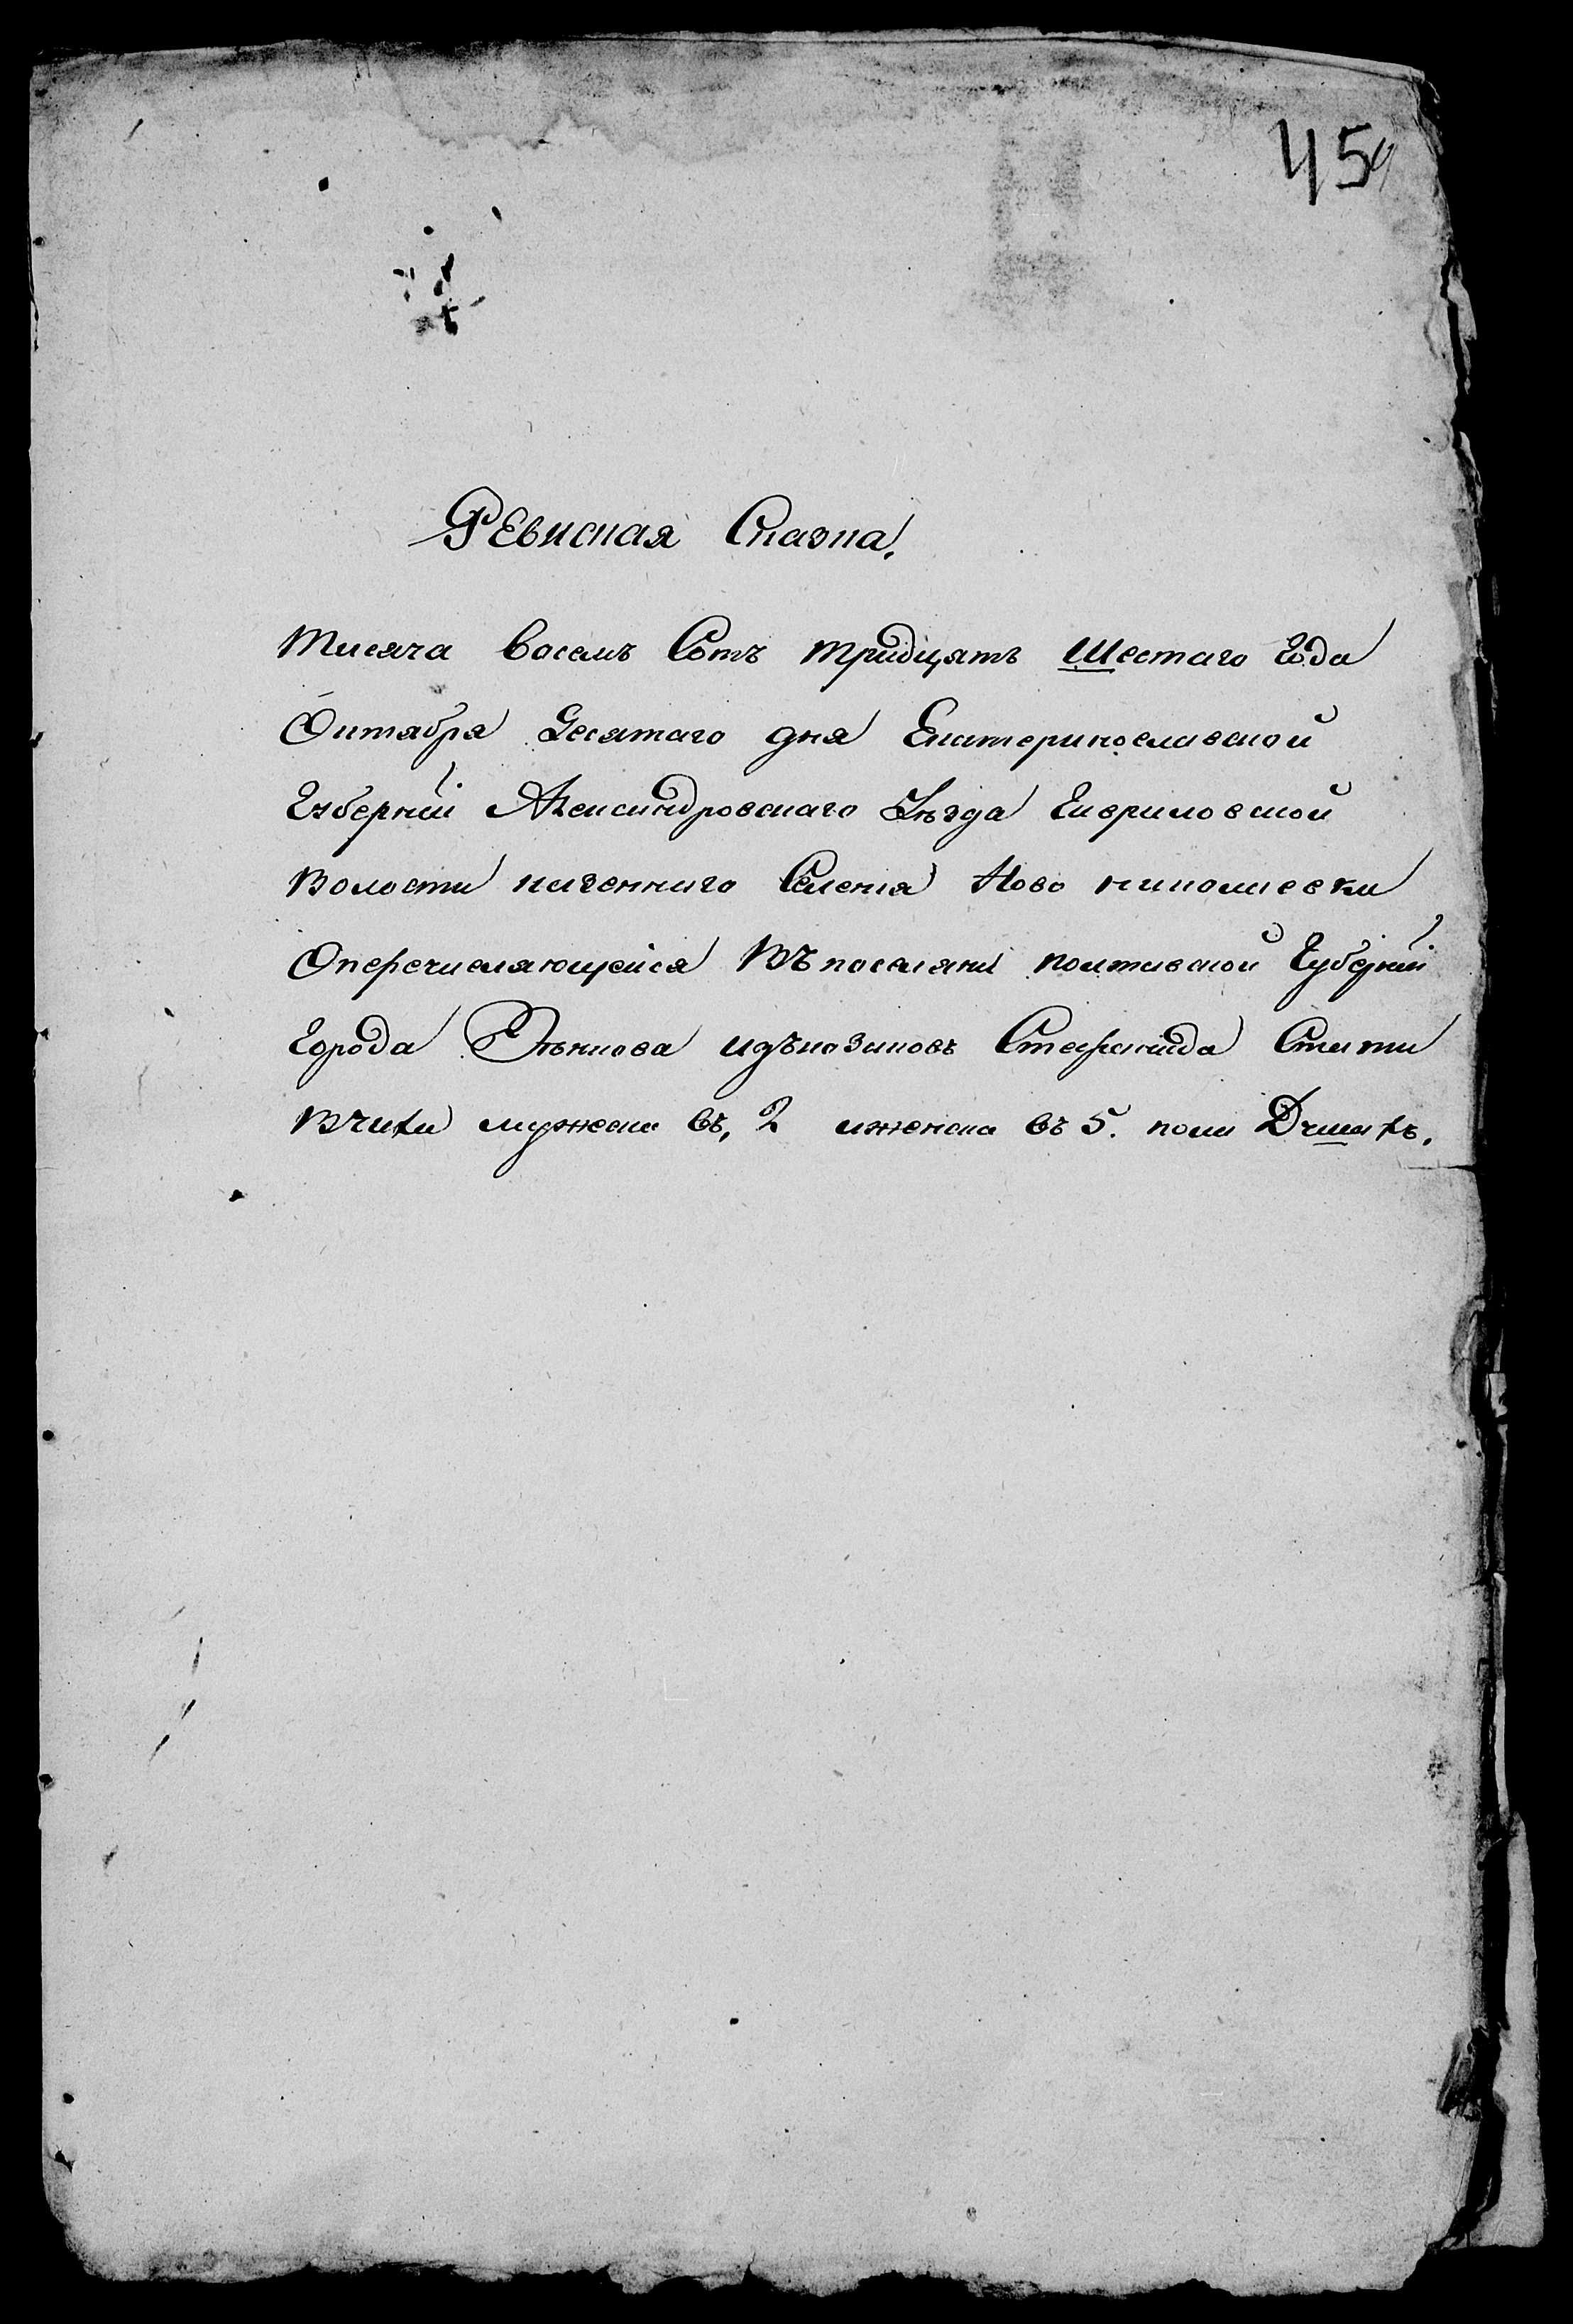 459
Ревиская Сказка.
Тисяча восемъ Сотъ тридцять шестаго Года
Октября Десятаго дня Екатеринославской
Губерніи Александровскаго Уѣзда Гавриловской
Волости казеннаго Селенія Ново николаевки
Оперечисляющейся Въ поселяни полтавской Губерніи
Города изъ козаковъ Стати
въ, 2 иженска въ 5. пола Душахъ.